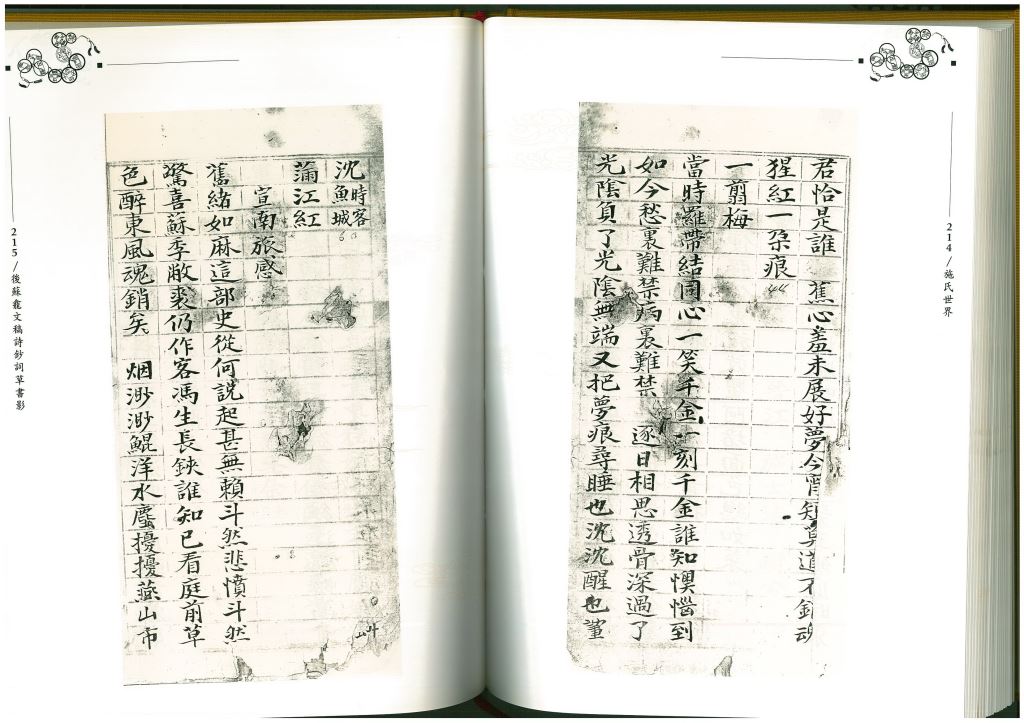 214/施氏世界
君恰是誰　蕉心羞未展好夢今宵短莫道不銷魂
猩紅一朵痕
一翦梅
當時羅帶結同心一笑千金一刻千金誰知懊惱到
如今愁裏難禁病裏難禁　逐日相思透骨深過了
光陰負了光陰無端又把夢痕尋睡也沈沈醒也
沈時客
魚城
蒲江紅
宣南旅感
舊緒如麻這部史從何說起甚無賴斗然悲憤斗然
驚喜蘇季敝裘仍作客馮生長鋏誰知已看庭前草
色醉東風魂銷矣　烟渺渺鯤洋水塵擾擾燕山市
215/後蘇龕文稿詩鈔詞草書影